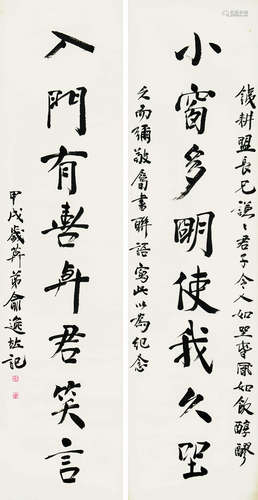 小窗多明使我久坐
入門有喜與君笑言
鐵耕盟長兄謙謙君子令人如坐春風如飲醇醪
久而彌敬屬書聯語寫此以為紀念
甲戌歲
弟俞逸
記